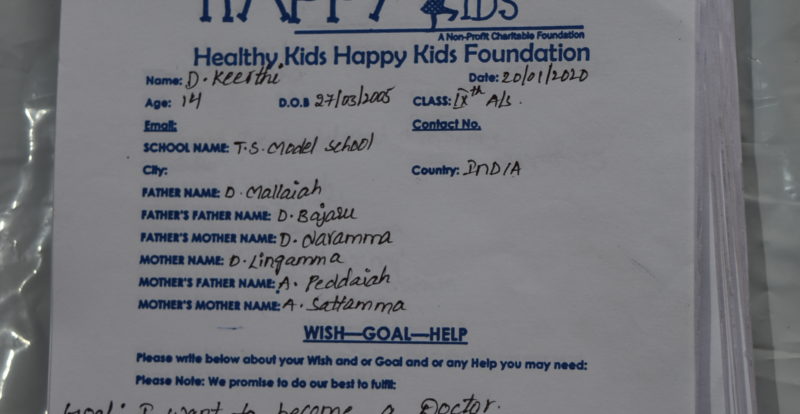 HAPPY KIDS
A Non-Profit Charitable Foundation
Healthy Kids Happy Kids Foundation
Name: D. Keerthi Date: 20/01/2020
Age: 14 D.O.B 27/03/2005 CLASS: IXth A/s.
Email: Contact No.
SCHOOL NAME: T.S. Model School
City: Country: INDIA
FATHER NAME: D. Mallaiah
FATHER'S FATHER NAME: D. Bajaru
FATHER'S MOTHER NAME: D. Naramma
MOTHER NAME: D. Lingamma
MOTHER'S FATHER NAME: A. Peddaiah
MOTHER'S MOTHER NAME: A. Sattamma
WISH—GOAL—HELP
Please write below about your Wish and or Goal and or any Help you may need:
Please Note: We promise to do our best to fulfil:
Goal: I want to become a Doctor.